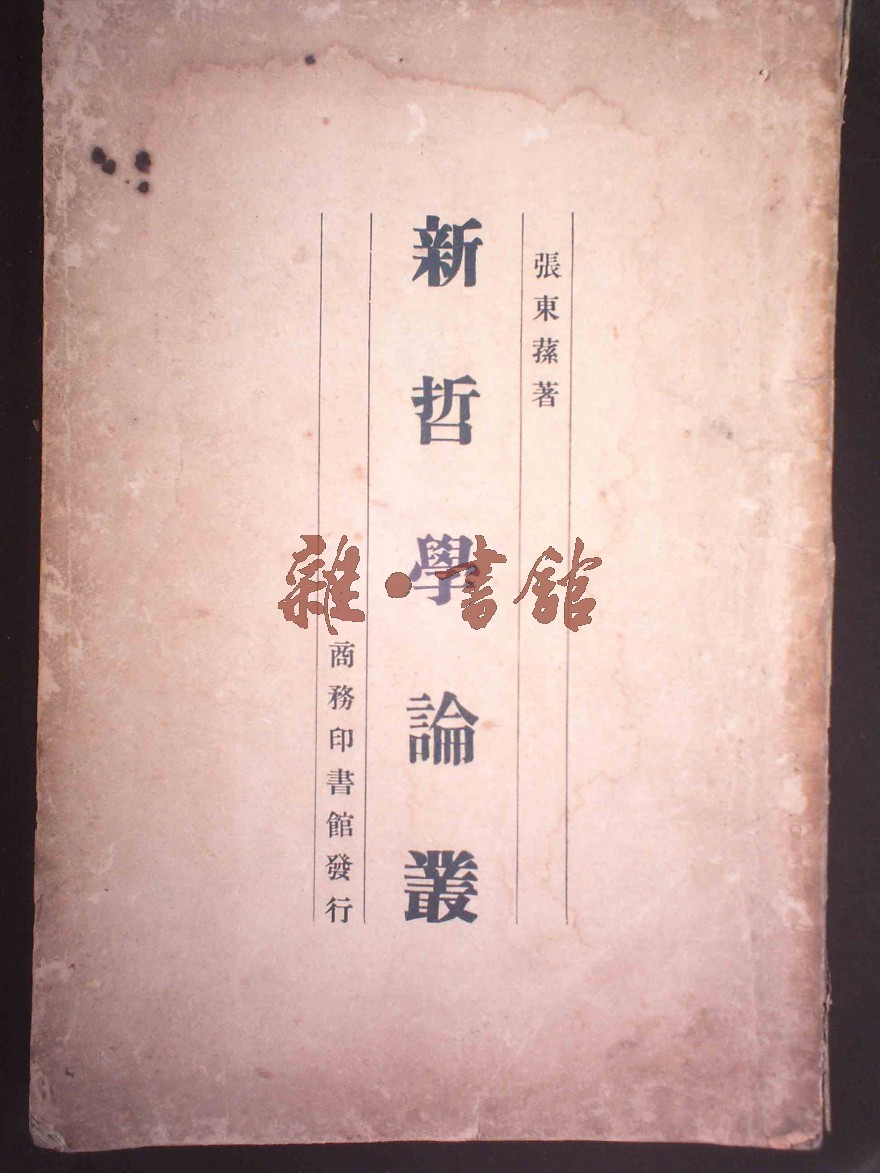 張東蓀著
新哲學論叢
商務印書館發行
雜·書館